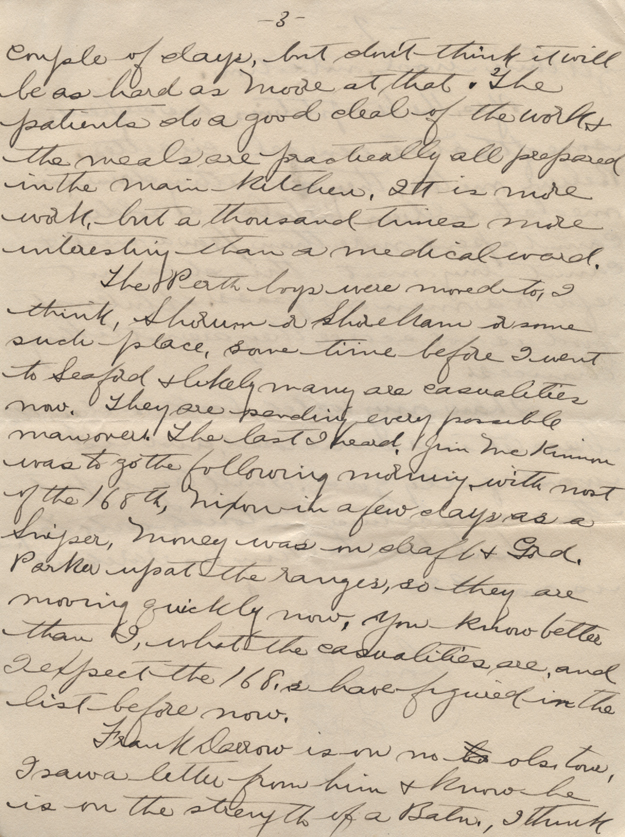 -3-
couple of days, but don't think it will
be as hard as Moore at that. The
patients do a good deal of the work &
the meals are practically all prepared
in the main kitchen. It is more
work, but a thousand times more
interesting than a medical ward.
The Perth boys were moved to, I
think, Shorum or Shoreham or some
such place, some time before I went
to Seaford & likely many are casualities
now. They are sending every possible
man over. The last I heard, Jim McKinnon
was to go the following morning with most
of the 168th, Nixon in a few days as a
Sniper, Money was on draft & God.
Parker up at the ranges, so they are
moving quickly now. You know better
than I, what the casualities are, and
I expect the 168.s have figured in the
list before now.
Frank Darrow is on no
I saw a letter from him & know he
is on the strength of a Batn., I think